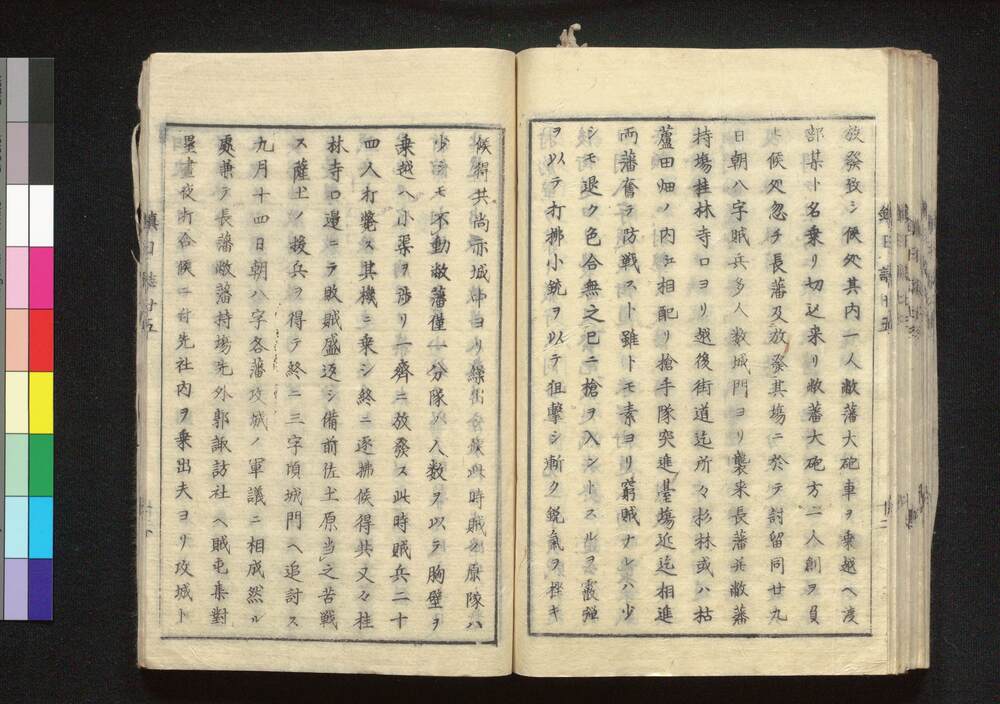 放發致シ候処其内一人敝藩大砲車ヲ乗越ヘ渡
部某ト名乗リ切込来リ敝藩大砲方二人創ヲ負
候処忽チ長藩及放發其場ニ於テ討留同廿九
日朝八字賊兵多人数城門ヨリ襲来長藩共敝藩
持場桂林寺口ヨリ越後街道迄所々杉林或ハ枯
蘆田畑ノ内江相配リ槍手隊突進臺場近迄相進
両藩奮テ防戦スト雖トモ素ヨリ窮賊ナレハ少
シモ退ク色合無之已ニ槍ヲ入ントスルヲ霰弾
ヲ以テ打拂小銃ヲ以テ狙撃シ漸ク鋭氣ヲ挫キ
候得共尚亦城中ヨリ此時賊原隊ハ
少シモ不動敝藩僅一分隊ノ人数ヲ以テ胸壁ヲ
乗越ヘ小渠ヲ渉リ一齊ニ放發ス此時賊兵二十
四人打斃ス其機ニ乗シ終ニ逐拂候得共又々桂
林寺口邊ニテ敗賊盛返シ備前佐土原當之苦戦
ス薩土ノ援兵ヲ得テ終ニ三字頃城門ヘ追討ス
九月十四日朝八字各藩攻城ノ軍議ニ相成然ル
處兼テ長藩敝藩持場先外郭諏訪社ヘ賊屯集對
壘晝夜打合候ニ付先社内ヲ乗出夫ヨリ攻城ト
鎮日誌廿五